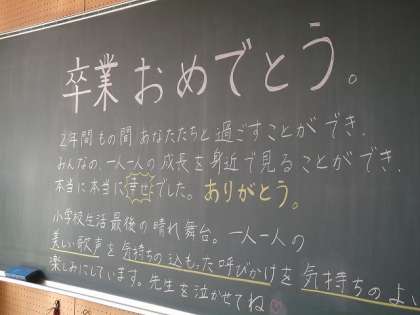 卒業おめでとう。
2年間もの間あなたたちと過ごすことができ、
みんなの、一人一人の成長を身近で見ることができ、
本当に本当に幸せでした。ありがとう。
小学校生活最後の晴れ舞台。一人一人の
美しい歌声を気持ちの込もった呼びかけを気持ちのよ
楽しみにしています。先生を泣かせてね